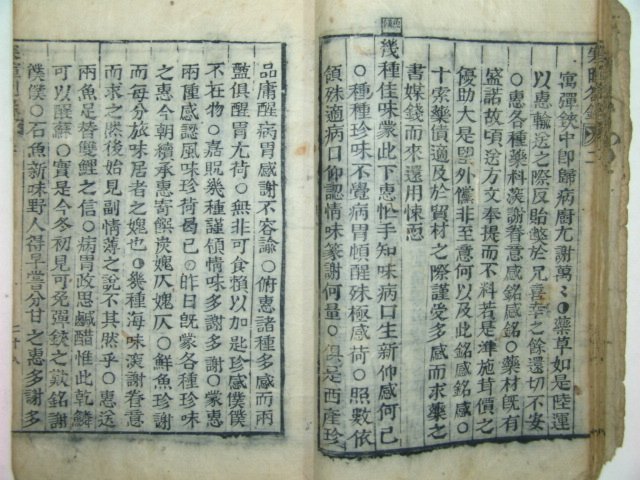 寒暄箚錄 二
寓彈鋏中卽歸病廚尤謝萬〻●藥草如是陸運
以惠輸送之際反貽弊於兄喜幸之餘還切不安
○惠各種藥料深謝眷意感銘感銘○藥材旣有
盛諾故頃送方文奉提而不料若是準施貰價之
優助大是望外儻非至意何以及此銘感銘感○
十索藥債適及於貿材之際謹受多感而求藥之
書媒錢而來還用悚恧
幾種佳味蒙此下惠忙手知味病口生新仰感何已
○種種珍味不覺病胃頓醒殊極感荷○照數依
領殊適病口仰認情味篆謝何量○俱是西產珍
品庸醒病胃感謝不容諭○俯惠諸種多感而兩
盤俱醒胃尤荷○無非可食顏以加匙珍感僕僕
不在物○嘉貺幾種謹領情味多謝多謝○蒙惠
兩種感認風味珍荷曷已○昨日旣蒙各種珍味
之惠今朝續承惠寄饌炭媿仄媿仄○鮮魚珍謝
而每分旅味居者之媿也●幾種海味深謝眷意
而求之然後始見副情薄之說不其然乎○惠送
兩魚足替雙鯉之信○病胃政思鹹醋惟此乾鱗
可以醒蘇○實是今冬初見可免彈鋏之歎銘謝
僕僕○石魚新味野人得早嘗分甘之惠多謝多
二十八